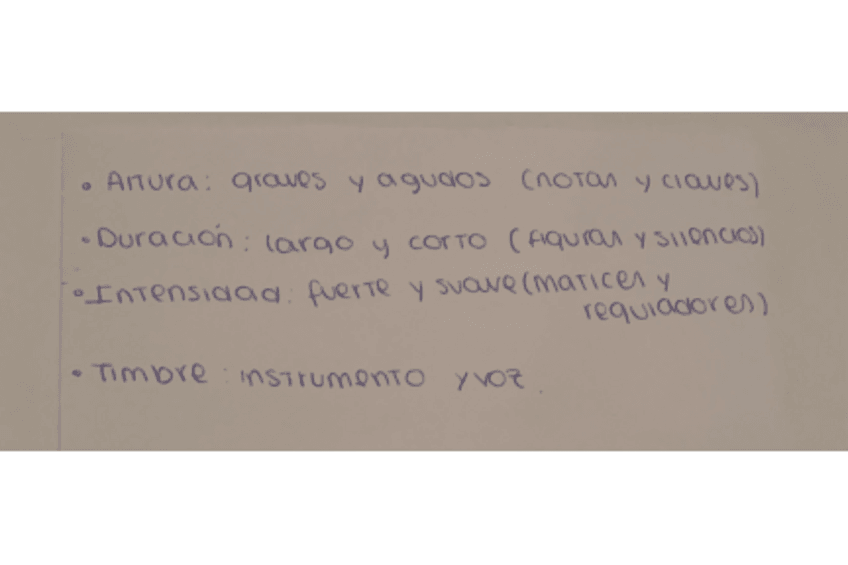 • Altura: graves y agudos (notas y claves)
• Duración: largo y corto (figuras y silencios)
• Intensidad: fuerte y suave (matices y
reguladores)
• Timbre: instrumento y voz.